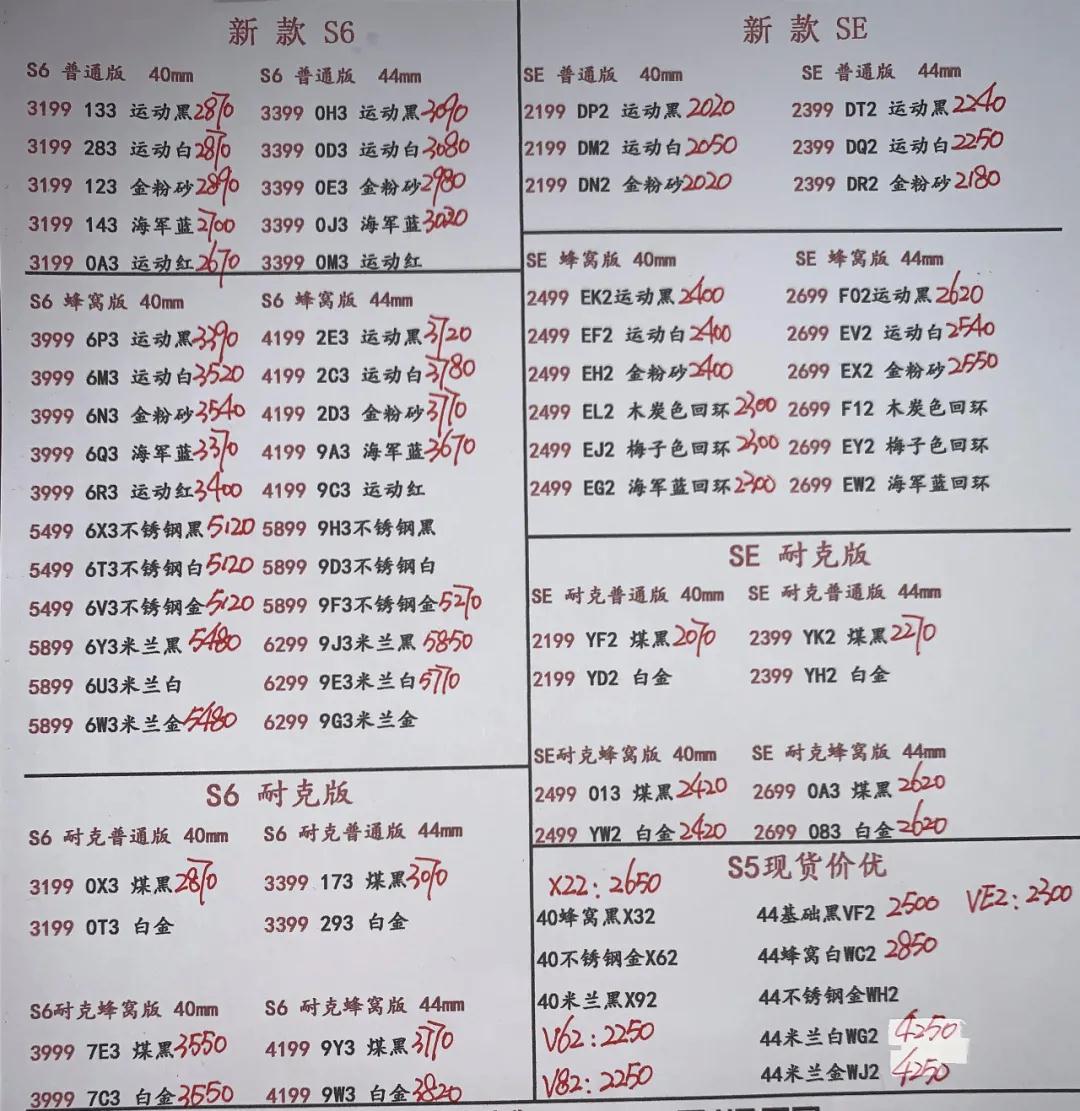 新 款 S6
S6 普通版 40mm
3199 133 运动黑2870
3199 283 运动白2870
3199 123 金粉砂2890
3199 143 海军蓝2700
3199 0A3 运动红2670
S6 普通版 44mm
3399 0H3 运动黑3090
3399 0D3 运动白3080
3399 0E3 金粉砂2980
3399 0J3 海军蓝3020
3399 0M3 运动红
S6 蜂窝版 40mm
3999 6P3 运动黑3390
3999 6M3 运动白3520
3999 6N3 金粉砂3540
3999 6Q3 海军蓝3370
3999 6R3 运动红3400
5499 6X3不锈钢黑5120
5499 6T3不锈钢白5120
5499 6V3不锈钢金5120
5899 6Y3米兰黑5480
5899 6U3米兰白
5899 6W3米兰金5480
S6 蜂窝版 44mm
4199 2E3 运动黑3720
4199 2C3 运动白3780
4199 2D3 金粉砂3770
4199 9A3 海军蓝3670
4199 9C3 运动红
5899 9H3不锈钢黑
5899 9D3不锈钢白
5899 9F3不锈钢金5270
6299 9J3米兰黑5850
6299 9E3米兰白5770
6299 9G3米兰金
S6 耐克版
S6 耐克普通版 40mm
3199 0X3 煤黑2870
3199 0T3 白金
S6 耐克普通版 44mm
3399 173 煤黑3070
3399 293 白金
S6耐克蜂窝版 40mm
3999 7E3 煤黑3550
3999 7C3 白金3550
S6 耐克蜂窝版 44mm
4199 9Y3 煤黑3770
4199 9W3 白金3820
新 款 SE
SE 普通版 40mm
2199 DP2 运动黑2020
2199 DM2 运动白2050
2199 DN2 金粉砂2020
SE 普通版 44mm
2399 DT2 运动黑2240
2399 DQ2 运动白2250
2399 DR2 金粉砂2180
SE 蜂窝版 40mm
2499 EK2运动黑2400
2499 EF2 运动白2400
2499 EH2 金粉砂2400
2499 EL2 木炭色回环2300
2499 EJ2 梅子色回环2300
2499 EG2 海军蓝回环2300
SE 蜂窝版 44mm
2699 F02运动黑2620
2699 EV2 运动白2540
2699 EX2 金粉砂2550
2699 F12 木炭色回环
2699 EY2 梅子色回环
2699 EW2 海军蓝回环
SE 耐克版
SE 耐克普通版 40mm
2199 YF2 煤黑2070
2199 YD2 白金
SE 耐克普通版 44mm
2399 YK2 煤黑2270
2399 YH2 白金
SE耐克蜂窝版 40mm
2499 013 煤黑2420
2499 YW2 白金2420
SE 耐克蜂窝版 44mm
2699 0A3 煤黑2620
2699 083 白金2620
S5现货价优
X22：2650
40蜂窝黑X32
40不锈钢金X62
40米兰黑X92
V62：2250
V82：2250
44基础黑VF2 2500 VE2：2300
44蜂窝白WC2 2850
44不锈钢金WH2
44米兰白WG2 4250
44米兰金WJ2 4250